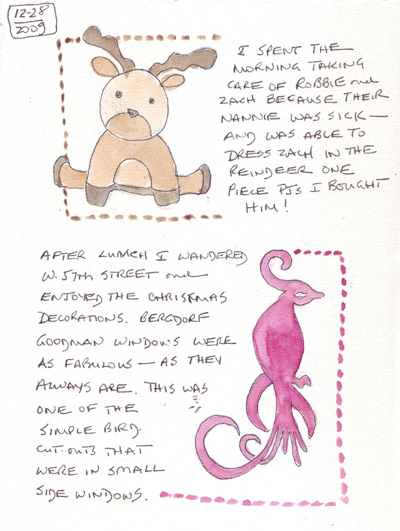 12-28
2009
I SPENT THE
MORNING TAKING
CARE OF ROBBIE and
ZACH BECAUSE THEIR
NANNIE WAS SICK —
AND WAS ABLE TO
DRESS ZACH IN THE
REINDEER ONE
PIECE PJS I BOUGHT
HIM!
AFTER LUNCH I WANDERED
W. 57TH STREET and
ENJOYED THE CHRISTMAS
DECORATIONS. BERGDORF
GOODMAN WINDOWS WERE
AS FABULOUS — AS THEY
ALWAYS ARE. THIS WAS
ONE OF THE
SIMPLE BIRD
CUT-OUTS THAT
WERE IN SMALL
SIDE WINDOWS.